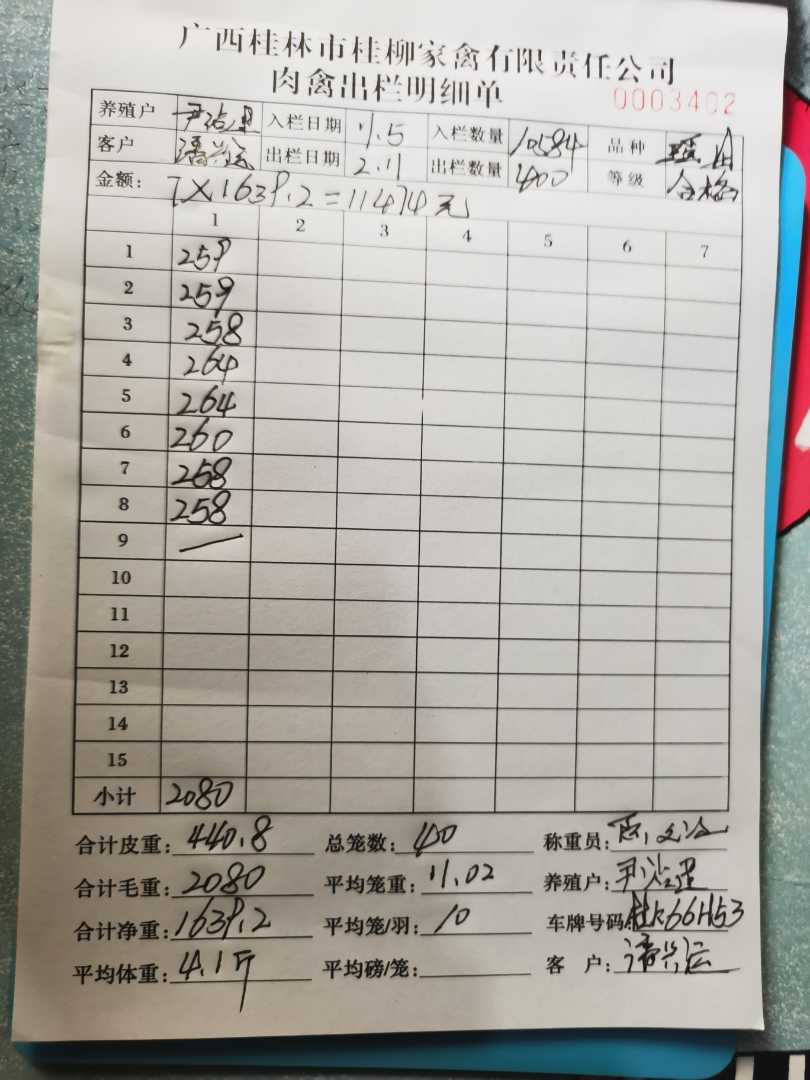 广西桂林市桂柳家禽有限责任公司
肉禽出栏明细单
0003402
养殖户 入栏日期 11.5 入栏数量 10584 品种
客户 潘兴运 出栏日期 2.11 出栏数量 400 等级 合格
金额: 7×1639.2=11474元
1 2 3 4 5 6 7
1 259
2 259
3 258
4 264
5 264
6 260
7 258
8 258
9 —
10
11
12
13
14
15
小计 2080
合计皮重: 440.8 总笼数: 40 称重员:
合计毛重: 2080 平均笼重: 11.02 养殖户:
合计净重: 1639.2 平均笼/羽: 10 车牌号码: 桂K66H53
平均体重: 4.1斤 平均磅/笼: 客 户: 潘兴运